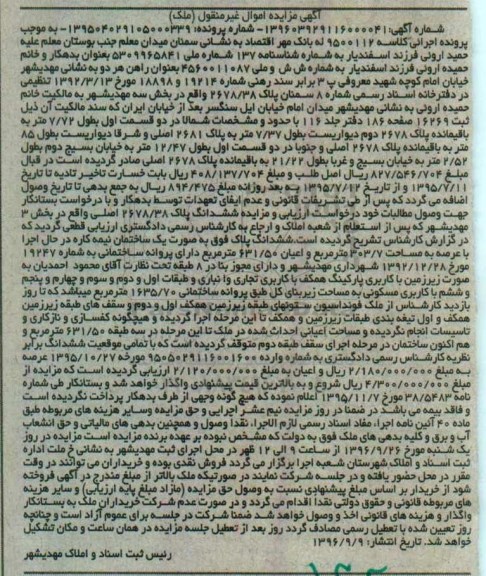 آگهی مزایده اموال غیرمنقول (ملک)
شماره آگهی: ۱۳۹۶۰۳۹۲۹۱۱۶۰۰۰۰۴۱- شماره پرونده: ۱۳۹۵۰۴۰۲۹۱۰۵۰۰۰۳۳۹- به موجب
پرونده اجرائی کلاسه ۹۵۰۰۱۱۲ له بانک مهر اقتصاد به نشانی سمنان میدان معلم جنب بوستان معلم علیه
حمید ارونی فرزند اسفندیار به شماره شناسنامه ۱۳۷ شماره ملی ۵۳۰۹۹۶۵۸۴۱ بعنوان بدهکار و خانم
حمیده ارونی فرزند اسفندیار به شماره ش ش و ملی ۴۵۶۰۰۱۱۰۸۷ بعنوان راهن هر دو به نشانی مهدیشهر
خیابان امام کوچه شهید معروفی پ ۳ برابر سند رهنی شماره ۱۹۲۱۴ و ۱۸۸۹۸ مورخ ۱۳۹۲/۳/۱۳ تنظیمی
در دفترخانه اسناد رسمی شماره ۸ سمنان پلاک ۲۶۷۸/۳۸ واقع در بخش سه مهدیشهر به مالکیت خانم
حمیده ارونی به نشانی مهدیشهر میدان امام خیابان ایل سنگسر بعد از خیابان ایران که سند مالکیت آن ذیل
ثبت ۱۶۲۶۹ صفحه ۱۸۶ دفتر جلد ۱۱۶ با حدود و مشخصات شمالا در دو قسمت اول بطول ۷/۷۲ متر به
باقیمانده پلاک ۲۶۷۸ دوم دیواریست بطول ۷/۳۷ متر به پلاک ۲۶۸۱ اصلی و شرقا دیواریست بطول ۸۵
متر به باقیمانده پلاک ۲۶۷۸ اصلی و جنوبا در دو قسمت اول بطول ۱۲/۴۷ متر به خیابان بسیج دوم بطول
۲/۵۲ متر به خیابان بسیج و غربا بطول ۲۱/۲۲ به باقیمانده پلاک ۲۶۷۸ اصلی صادر گردیده است در قبال
مبلغ ۸۲۷/۵۴۶/۷۰۴ ریال اصل طلب و مبلغ ۴۰۸/۱۳۷/۷۰۴ ریال بابت خسارت تاخیر تادیه تا تاریخ
۱۳۹۵/۷/۱۱ و از تاریخ ۱۳۹۵/۷/۱۲ به بعد روزانه مبلغ ۸۹۴/۴۷۵ ریال به جمع بدهی تا تاریخ وصول
اضافه می گردد که پس از طی تشریفات قانونی و عدم ایفای تعهدات توسط بدهکار و با درخواست بستانکار
جهت وصول مطالبات خود درخواست ارزیابی و مزایده ششدانگ پلاک ۲۶۷۸/۳۸ اصلی واقع در بخش ۳
مهدیشهر که پس از استعلام از شعبه املاک و ارجاع به کارشناس رسمی دادگستری ارزیابی قطعی گردید که
در گزارش کارشناس تشریح گردیده است. ششدانگ پلاک فوق به صورت یک ساختمان نیمه کاره در حال اجرا
با عرصه به مساحت ۳۰۳/۷ مترمربع و اعیان ۶۳۱/۵۰ مترمربع دارای پروانه ساختمانی به شماره ۱۹۲۴۷
مورخ ۱۳۹۲/۱۲/۲۸ شهرداری مهدیشهر و دارای مجوز بنا در ۸ طبقه تحت نظارت آقای محمود احمدیان به
صورت زیرزمین با کاربری پارکینگ همکف با کاربری تجاری وا نباری و طبقات اول و دوم و سوم و چهارم و پنجم
و ششم با کاربری مسکونی به مساحت زیربنای کل طبق پروانه ساختمانی ۱۶۳۵/۷۰ مترمربع میباشد که تا روز
بازدید کارشناس از ملک فونداسیون ستونهای طبقه زیرزمین همکف اول و دوم و سقف های طبقه زیرزمین
همکف و اول تیغه بندی طبقات زیرزمین و همکف تا این مرحله اجرا گردیده و هیچگونه کفسازی و نازکاری و
تاسیسات انجام نگردیده و مساحت اعیانی احداث شده در ملک تا این مرحله در سه طبقه ۶۳۱/۵۰ مترمربع و
هم اکنون ساختمان در مرحله اجرای سقف طبقه دوم متوقف گردیده است که با تمامی موقعیت ششدانگ برابر
نظریه کارشناس رسمی دادگستری به شماره وارده ۹۵۰۵۰۲۹۱۱۶۰۰۱۶۰۰ مورخه ۱۳۹۵/۱۰/۲۷ عرصه
به مبلغ ۲/۱۸۰/۰۰۰/۰۰۰ ریال و اعیان به مبلغ ۲/۱۲۰/۰۰۰/۰۰۰ ارزیابی گردیده است که مزایده از
مبلغ ۴/۳۰۰/۰۰۰/۰۰۰ ریال شروع و به بالاترین قیمت پیشنهادی واگذار خواهد شد و بستانکار طی شماره
نامه ۳۸/۵۴۸۳ مورخ ۱۳۹۵/۱۱/۷ اعلام نموده که هیچ گونه وجهی از طرف بدهکار پرداخت نگردیده است
و فاقد بیمه می باشد در ضمنا در روز مزایده نیم عشر اجرایی و حق مزایده وسایر هزینه های مربوطه طبق
ماده ۴۰ آئین نامه اجرا، مفاد اسناد رسمی لازم الاجرا، نقدا وصول و همچنین بدهی های مالیاتی و حق انشعاب
آب و برق و کلیه بدهی های ملک فوق به دولت که مشخص نبوده بر عهده برنده مزایده است مزایده در روز
یک شنبه مورخ ۱۳۹۶/۹/۲۶ از ساعت ۹ الی ۱۲ ظهر در محل اجرای ثبت مهدیشهر به نشانی خ ملت اداره
ثبت اسناد و املاک شهرستان شعبه اجرا برگزار می گردد فروش نقدی بوده و خریداران می توانند در وقت
مقرر در محل حضور یافته و در جلسه شرکت نمایند در صورتیکه ملک بالاتر از مبلغ مندرج در آگهی فروخته
شود از خریدار بر اساس مبلغ پیشنهادی نسبت به وصول حق مزایده (مازاد مبلغ پایه ارزیابی) و سایر هزینه
های مربوطه قانونی و حقوق دولتی نقدا اقدام می گردد و در صورت عدم شرکت خریداران ملک به بستانکار
واگذار و هزینه های قانونی اخذ و وصول خواهد شد ضمنا شرکت در جلسه برای عموم آزاد است و چنانچه
روز تعیین شده با تعطیل رسمی مصادف گردد روز بعد از تعطیل جلسه مزایده در همان ساعت و مکان تشکیل
خواهد شد. تاریخ انتشار: ۱۳۹۶/۹/۹
رئیس ثبت اسناد و املاک مهدیشهر